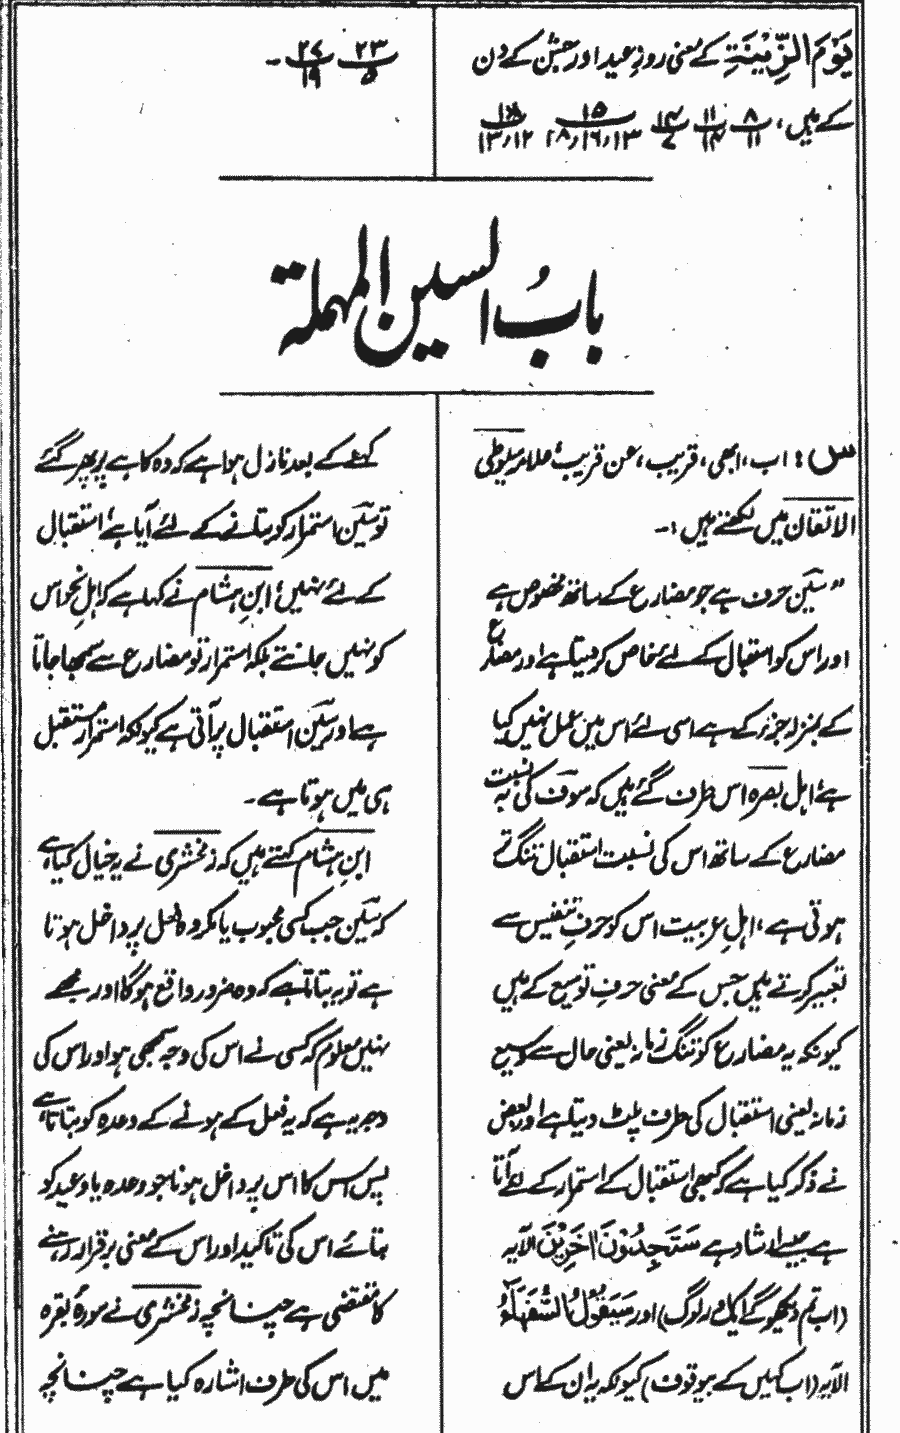 یَوْمَ الزِّیْنَۃِ کے معنی روزِ عید اور جشن کے دن
کے ہیں، ۸/۱۱ ۱۱/۱۲ ۱۴/۷ ۱۵/۱۳،۱۶،۱۸ ۱۸/۱۲،۱۳
۲۳/۵ ۲۷/۱۹ ۔
بابُ السین المہملۃ
س : اب، ابھی، قریب، عن قریب، علامہ سیوطی
الاتقان میں لکھتے ہیں :۔
”سَیْن حرف ہے جو مضارع کے ساتھ مخصوص ہے
اور اس کو استقبال کے لئے خاص کر دیتا ہے اور مضارع
کے بمنزلہ جزء کے ہے اسی لئے اس میں عمل نہیں کیا
ہے، اہل بصرہ اس طرف گئے ہیں کہ سوف کی بہ نسبت
مضارع کے ساتھ اس کی نسبت استقبال تنگ تر
ہوتی ہے، اہلِ عربیت اس کو حرفِ تنفیس سے
تعبیر کرتے ہیں جس کے معنی حرفِ توسیع کے ہیں
کیونکہ یہ مضارع کو تنگ زمانہ یعنی حال سے وسیع
زمانہ یعنی استقبال کی طرف پلٹ دیتا ہے اور بعض
نے ذکر کیا ہے کہ کبھی استقبال کے استمرار کے لئے آتا
ہے جیسے ارشاد ہے سَتَجِدُوْنَ اٰخَرِیْنَ الآیہ
(اب تم دیکھو گے ایک اور لوگ) اور سَیَقُوْلُ السُّفَہَآءُ
الآیہ (اب کہیں گے بیوقوف) کیونکہ یہ ان کے اس
کہنے کے بعد نازل ہوا ہے کہ وہ کاہے پر پھر گئے
تو سَیْن استمرار کو بتانے کے لئے آیا ہے، استقبال
کے لئے نہیں، ابنِ ہشام نے کہا ہے کہ اہلِ نحو اس
کو نہیں جانتے بلکہ استمرار تو مضارع سے سمجھا جاتا
ہے اور سَیْن استقبال پر آتی ہے کیونکہ استمرار مستقبل
ہی میں ہوتا ہے۔
ابنِ ہشام کہتے ہیں کہ زمخشری نے یہ خیال کیا ہے
کہ سَیْن جب کسی محبوب یا مکروہ فعل پر داخل ہوتا
ہے تو یہ بتاتا ہے کہ وہ ضرور واقع ہوگا اور مجھے
نہیں معلوم کہ کسی نے اس کی وجہ سمجھی ہو اور اس کی
وجہ یہ ہے کہ یہ فعل کے ہونے کے وعدہ کو بتاتا ہے
پس اس کا اس پر داخل ہونا جو وعدہ یا وعید کو
بتائے اس کی تاکید اور اس کے معنی برقرار رہنے
کا مقتضی ہے چنانچہ زمخشری نے سورۂ بقرہ
میں اس کی طرف اشارہ کیا ہے چنانچہ